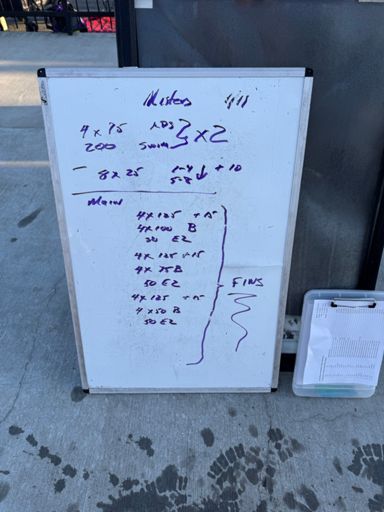 Masters 4/11
4 x 75
200 Swim } x 2
- 8 x 25 1-4 ↓ + 10
5-8
Main
4 x 125 + 15
4 x 100 B
50 EZ
4 x 125 + 15
4 x 75 B
50 EZ
4 x 125 + 15
4 x 50 B
50 EZ
FINS